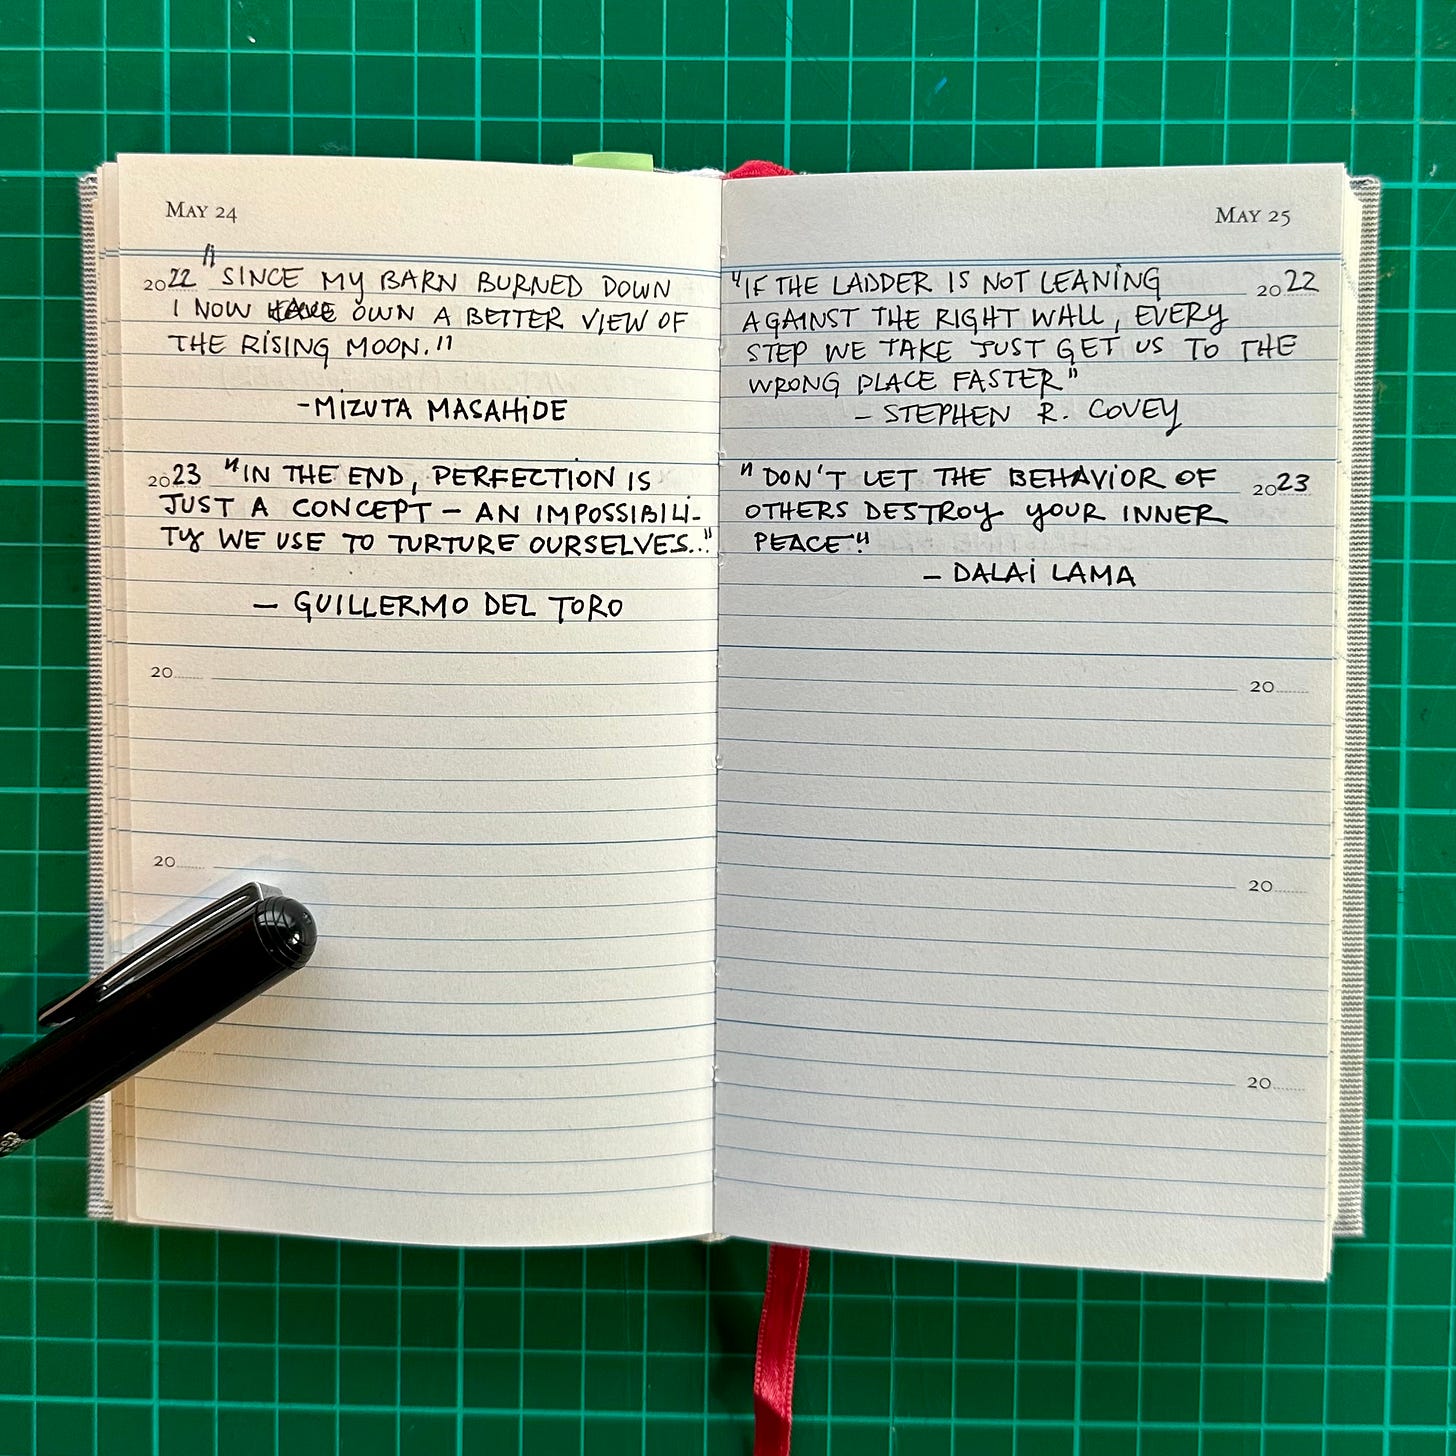 MAY 24
2022 "SINCE MY BARN BURNED DOWN
I NOW HAVE OWN A BETTER VIEW OF
THE RISING MOON."
-MIZUTA MASAHIDE
2023 "IN THE END, PERFECTION IS
JUST A CONCEPT - AN IMPOSSIBILI-
TY WE USE TO TURTURE OURSELVES..."
- GUILLERMO DEL TORO
20
20
MAY 25
"IF THE LADDER IS NOT LEANING 2022
AGAINST THE RIGHT WALL, EVERY
STEP WE TAKE JUST GET US TO THE
WRONG PLACE FASTER"
- STEPHEN R. COVEY
"DON'T LET THE BEHAVIOR OF 2023
OTHERS DESTROY YOUR INNER
PEACE"!
- DALAI LAMA
20
20
20